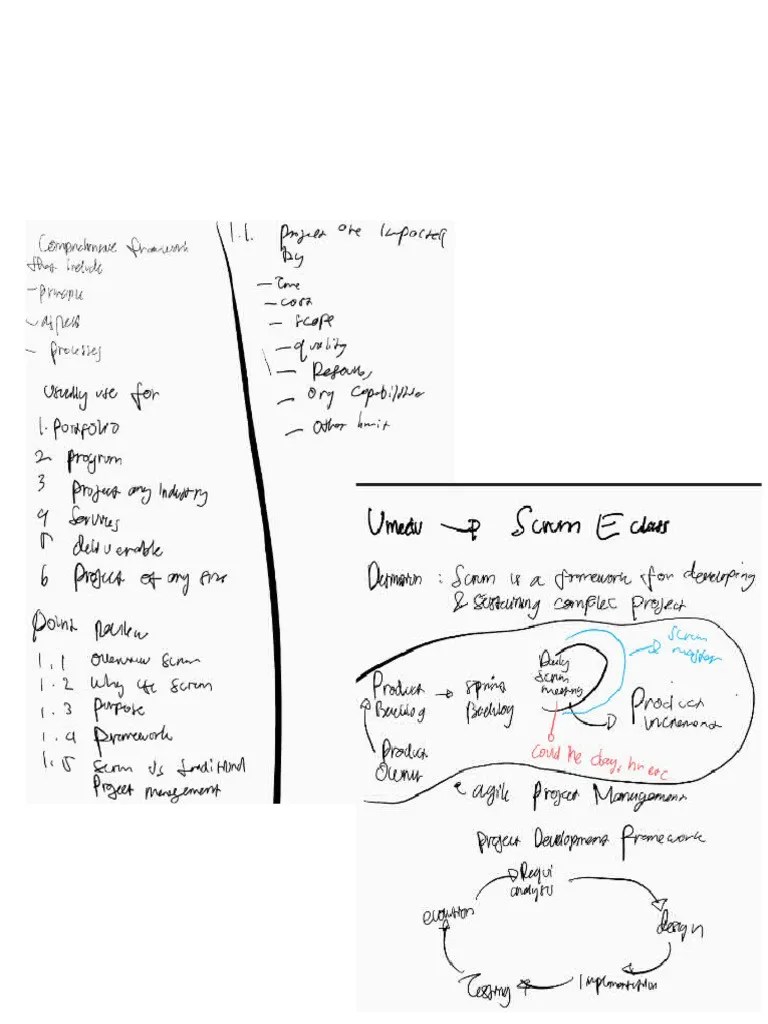 Comprehensive framework
that include
- principle
- aspects
- processes
Usually use for
1. Portfolio
2 Program
3 Project any Industry
4 Services
5 deliverable
6 Project of any size
Point Review
1.1 Overview Scrum
1.2 Why use Scrum
1.3 Purpose
1.4 Framework
1.5 Scrum vs traditional
Project management
1.1. Project are impacted
by
- Time
- cost
- scope
- quality
- Resources
- Org Capabilities
- Other limit
→ Scrum E class
Definition : Scrum is a framework for developing
& sustaining complex project
Scrum
master
Daily
Scrum
meeting
Product
Backlog
Spring
Backlog
Product
increment
Product
Owner
Could be days,
agile Project Management
Project Development Framework
Requi
analysis
design
Implementation
Testing
evolution